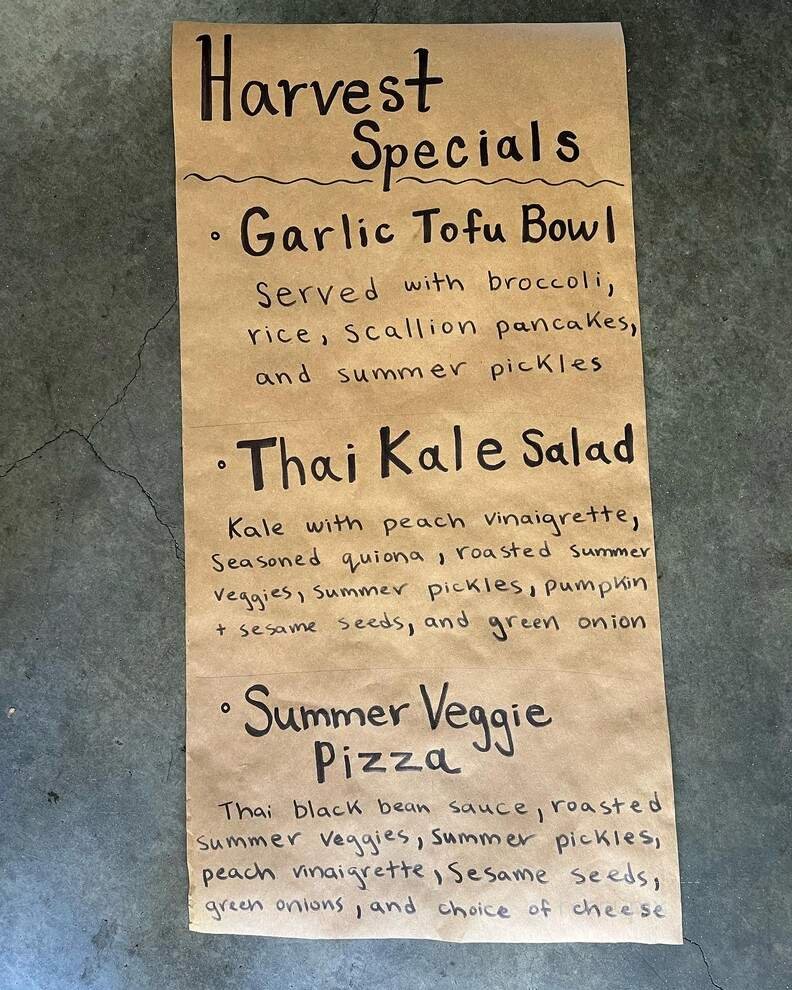 Harvest
Specials
• Garlic Tofu Bowl
Served with broccoli,
rice, scallion pancakes,
and summer pickles
• Thai Kale Salad
Kale with peach vinaigrette,
Seasoned quiona, roasted summer
veggies, summer pickles, pumpkin
+ sesame seeds, and green onion
• Summer Veggie
Pizza
Thai black bean sauce, roasted
summer veggies, summer pickles,
peach vinaigrette, Sesame seeds,
green onions, and choice of cheese